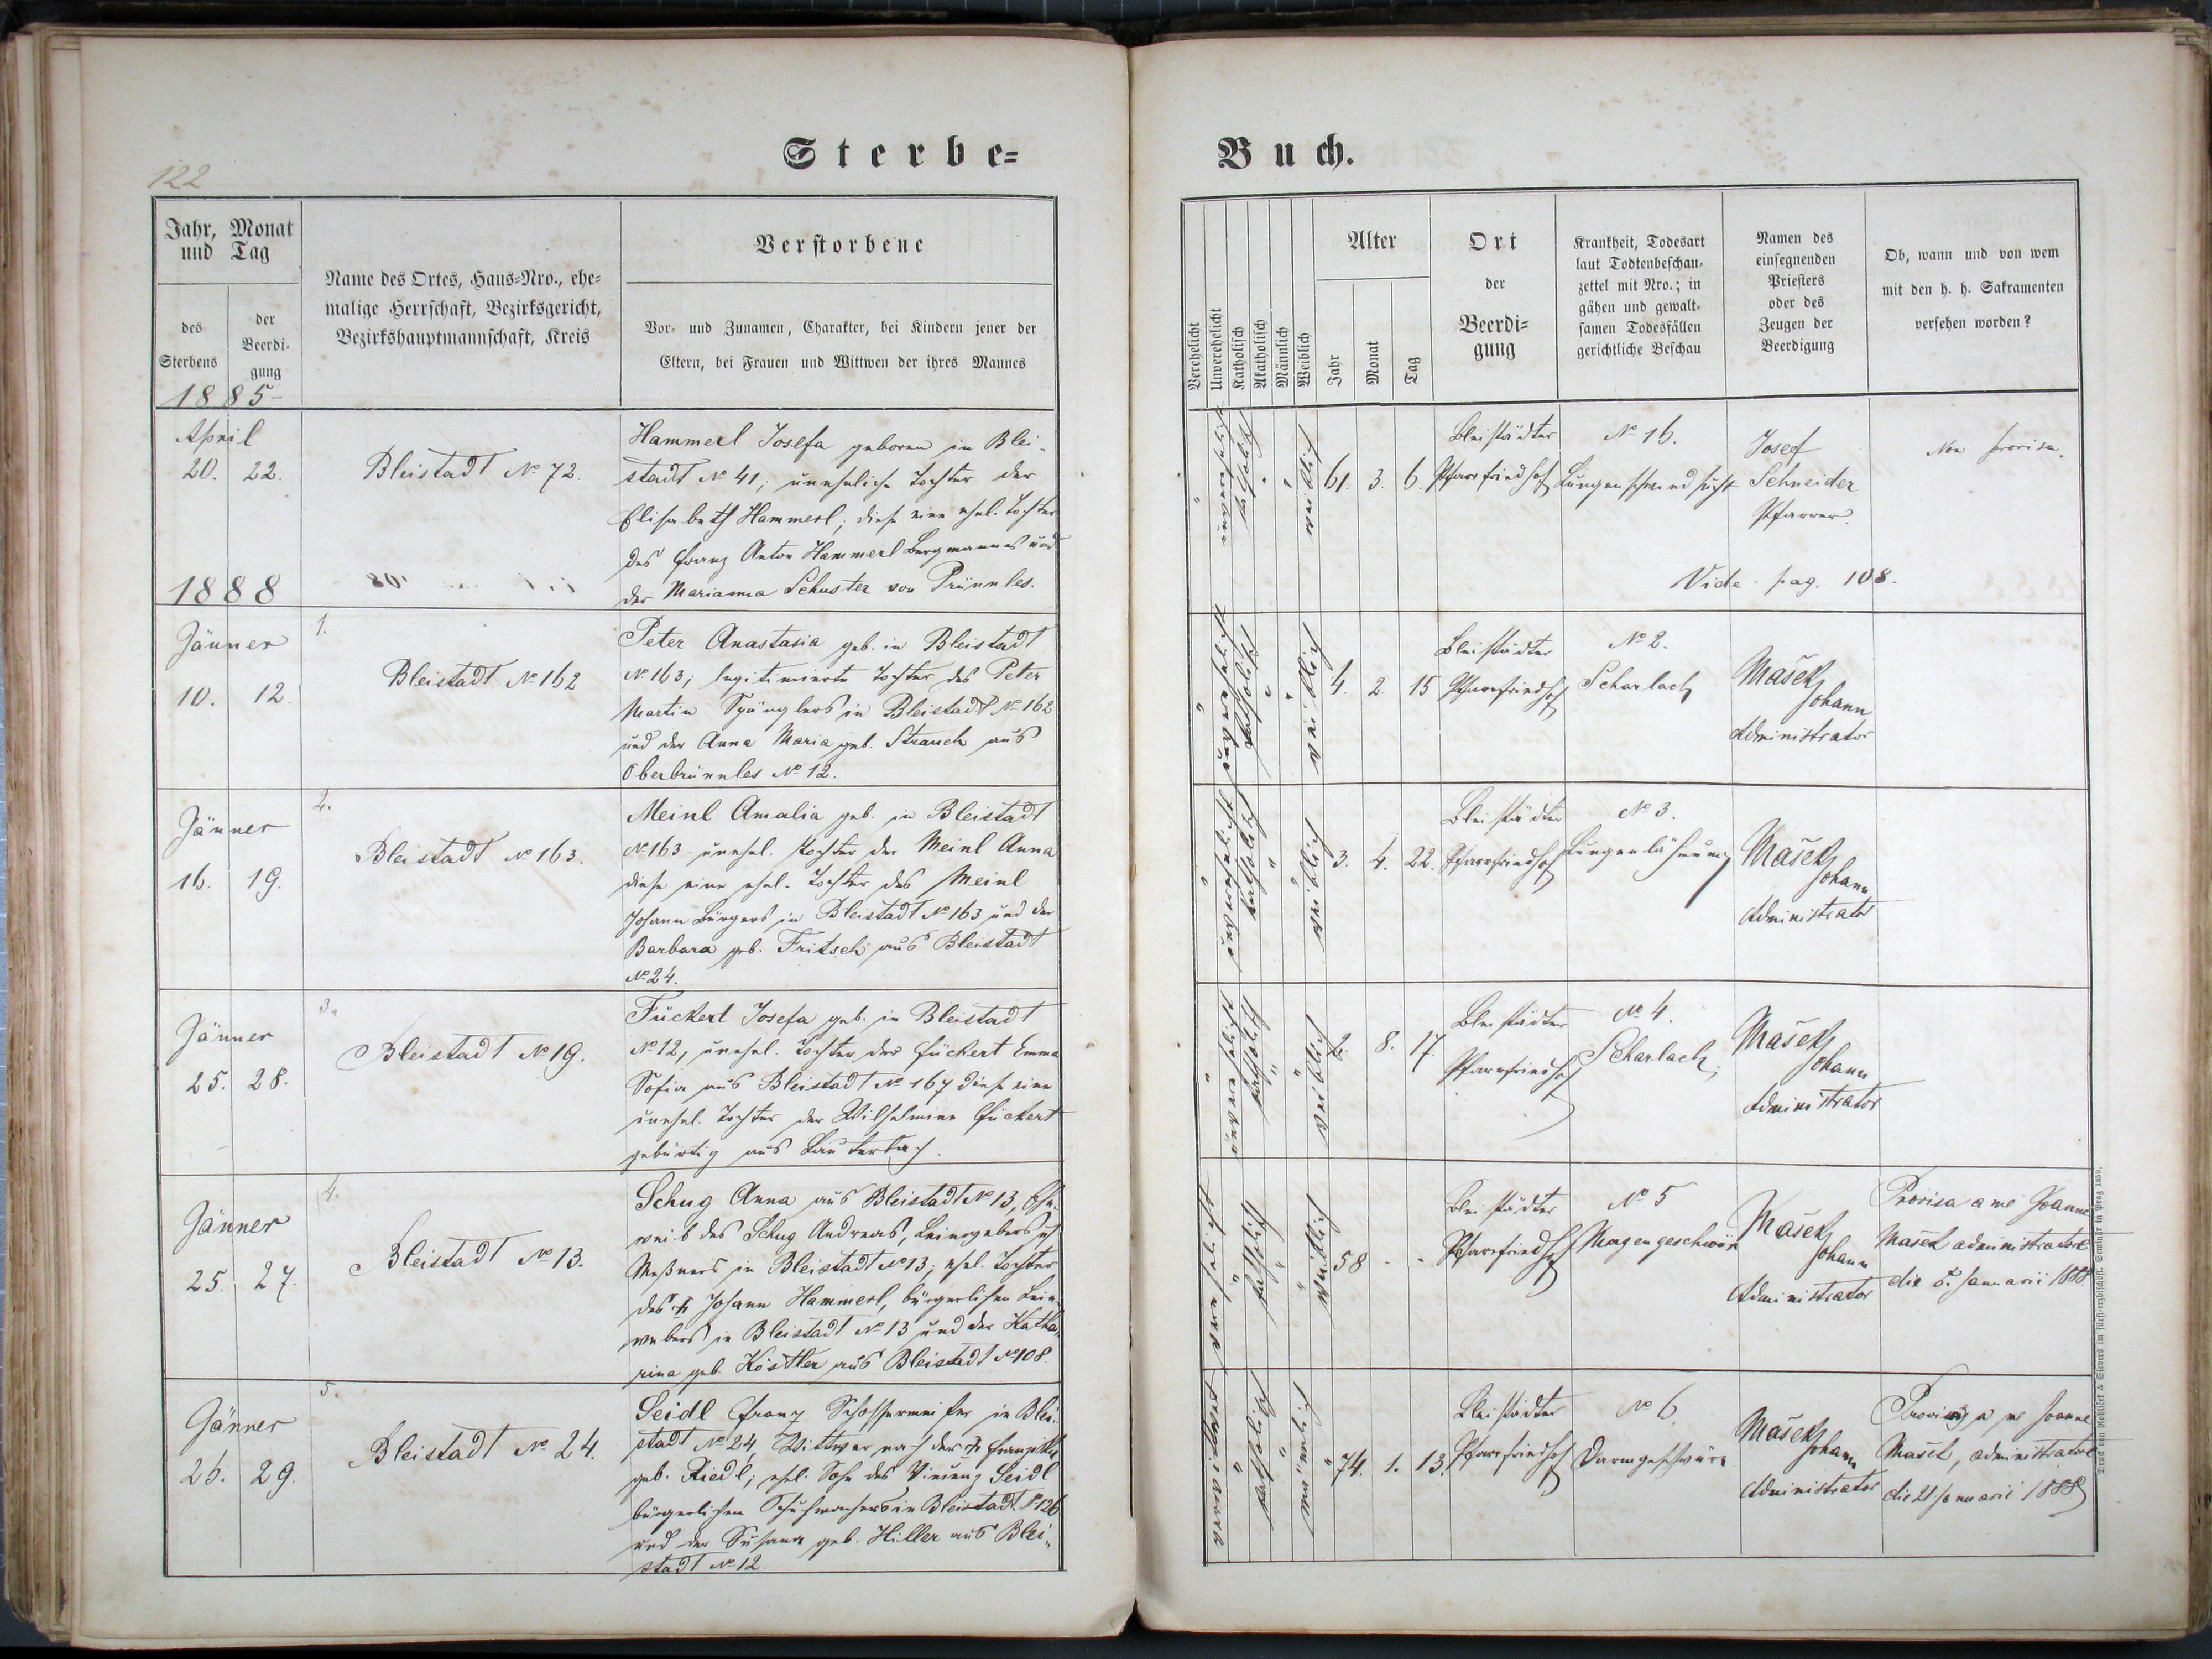 122
Sterbe=
Buch.
Jahr, Monat
und Tag
des
Sterbens
der
Beerdi-
gung
Name des Ortes, Haus=Nro., ehe=
malige Herrschaft, Bezirksgericht,
Bezirkshauptmannschaft, Kreis
Verstorbene
Vor- und Zunamen, Charakter, bei Kindern jener der
Eltern, bei Frauen und Wittwen der ihres Mannes
Verehelicht
Unverehelicht
Katholisch
Akatholisch
Männlich
Weiblich
Alter
Jahr
Monat
Tag
Ort
der
Beerdi=
gung
Krankheit, Todesart
laut Todtenbeschau-
zettel mit Nro.; in
gähen und gewalt-
samen Todesfällen
gerichtliche Beschau
Namen des
einsegnenden
Priesters
oder des
Zeugen der
Beerdigung
Ob, wann und von wem
mit den h. h. Sakramenten
versehen worden?
1885
April
20. 22.
Bleistadt No 72.
Hammerl Josefa geboren in Blei-
stadt No 41; uneheliche Tochter der
Elisabeth Hammerl; diese eine ehel. Tochter
des Franz Anton Hammerl Bergmannes und
der Marianna Schuster von Prünnles.
unverehelicht
katholisch
weiblich
61. 3. 6.
Bleistädter
Pfarrfriedhof
No 16.
Lungenschwindsucht
Josef
Schneider
Pfarrer.
Non provisa.
Vide pag. 108.
1888
Jänner
10. 12
1.
Bleistadt No 162
Peter Anastasia geb. in Bleistadt
No 163; legitimierte Tochter des Peter
Martin Spänglers in Bleistadt No 162
und der Anna Maria geb. Strauch aus
Oberbrünnles No 12.
unverehelicht
katholisch
weiblich
4. 2. 15
Bleistädter
Pfarrfriedhof
No 2.
Scharlach
Mašek
Johann
Administrator
Jänner
16. 19.
2.
Bleistadt No 163.
Meinl Amalia geb. in Bleistadt
No 163 unehel. Tochter der Meinl Anna
diese eine ehel. Tochter des Meinl
Johann Bürgers in Bleistadt No 163 und der
Barbara geb. Fritsch aus Bleistadt
No 24.
unverehelicht
katholisch
weiblich
3. 4. 22.
Bleistädter
Pfarrfriedhof
No 3.
Lungenlähmung
Mašek
Johann
Administrator
Jänner
25. 28.
3.
Bleistadt No 19.
Fückert Josefa geb. in Bleistadt
No 12, unehel. Tochter der Fückert Emma
Sofia aus Bleistadt No 167 diese eine
unehel. Tochter der Wilhelmine Fückert
gebürtig aus Lauterbach.
unverehelicht
katholisch
weiblich
2. 8. 17.
Bleistädter
Pfarrfriedhof
No 4.
Scharlach
Mašek
Johann
Administrator
Jänner
25. 27.
4.
Bleistadt No 13.
Schug Anna aus Bleistadt No 13, Ehe-
weib des Schug Andreas,
Meßners in Bleistadt No 13; ehel. Tochter
des † Johann Hammerl, bürgerlichen Lein-
webers in Bleistadt No 13 und der Katha-
rina geb. Köstler aus Bleistadt No 108.
verehelicht
katholisch
weiblich
58 - -
Bleistädter
Pfarrfriedhof
No 5
Magengeschwür
Mašek
Johann
Administrator
Provisa a me Joanne
Mašek administratore
die 5. Januarii 1888
Jänner
26. 29.
5.
Bleistadt No 24.
Seidl Franz Schlossermeister in Blei-
stadt No 24, Wittwer nach der †
geb. Riedl; ehel. Sohn des Vincenz Seidl
bürgerlichen Schuhmachers in Bleistadt No 126
und der Susana geb. Hiller aus Blei-
stadt No 12.
verwittwet
katholisch
männlich
74. 1. 13.
Bleistädter
Pfarrfriedhof
No 6
Darmgeschwüre
Mašek
Johann
Administrator
a me Joanne
Mašek, administratore
die 21. Januarii 1888